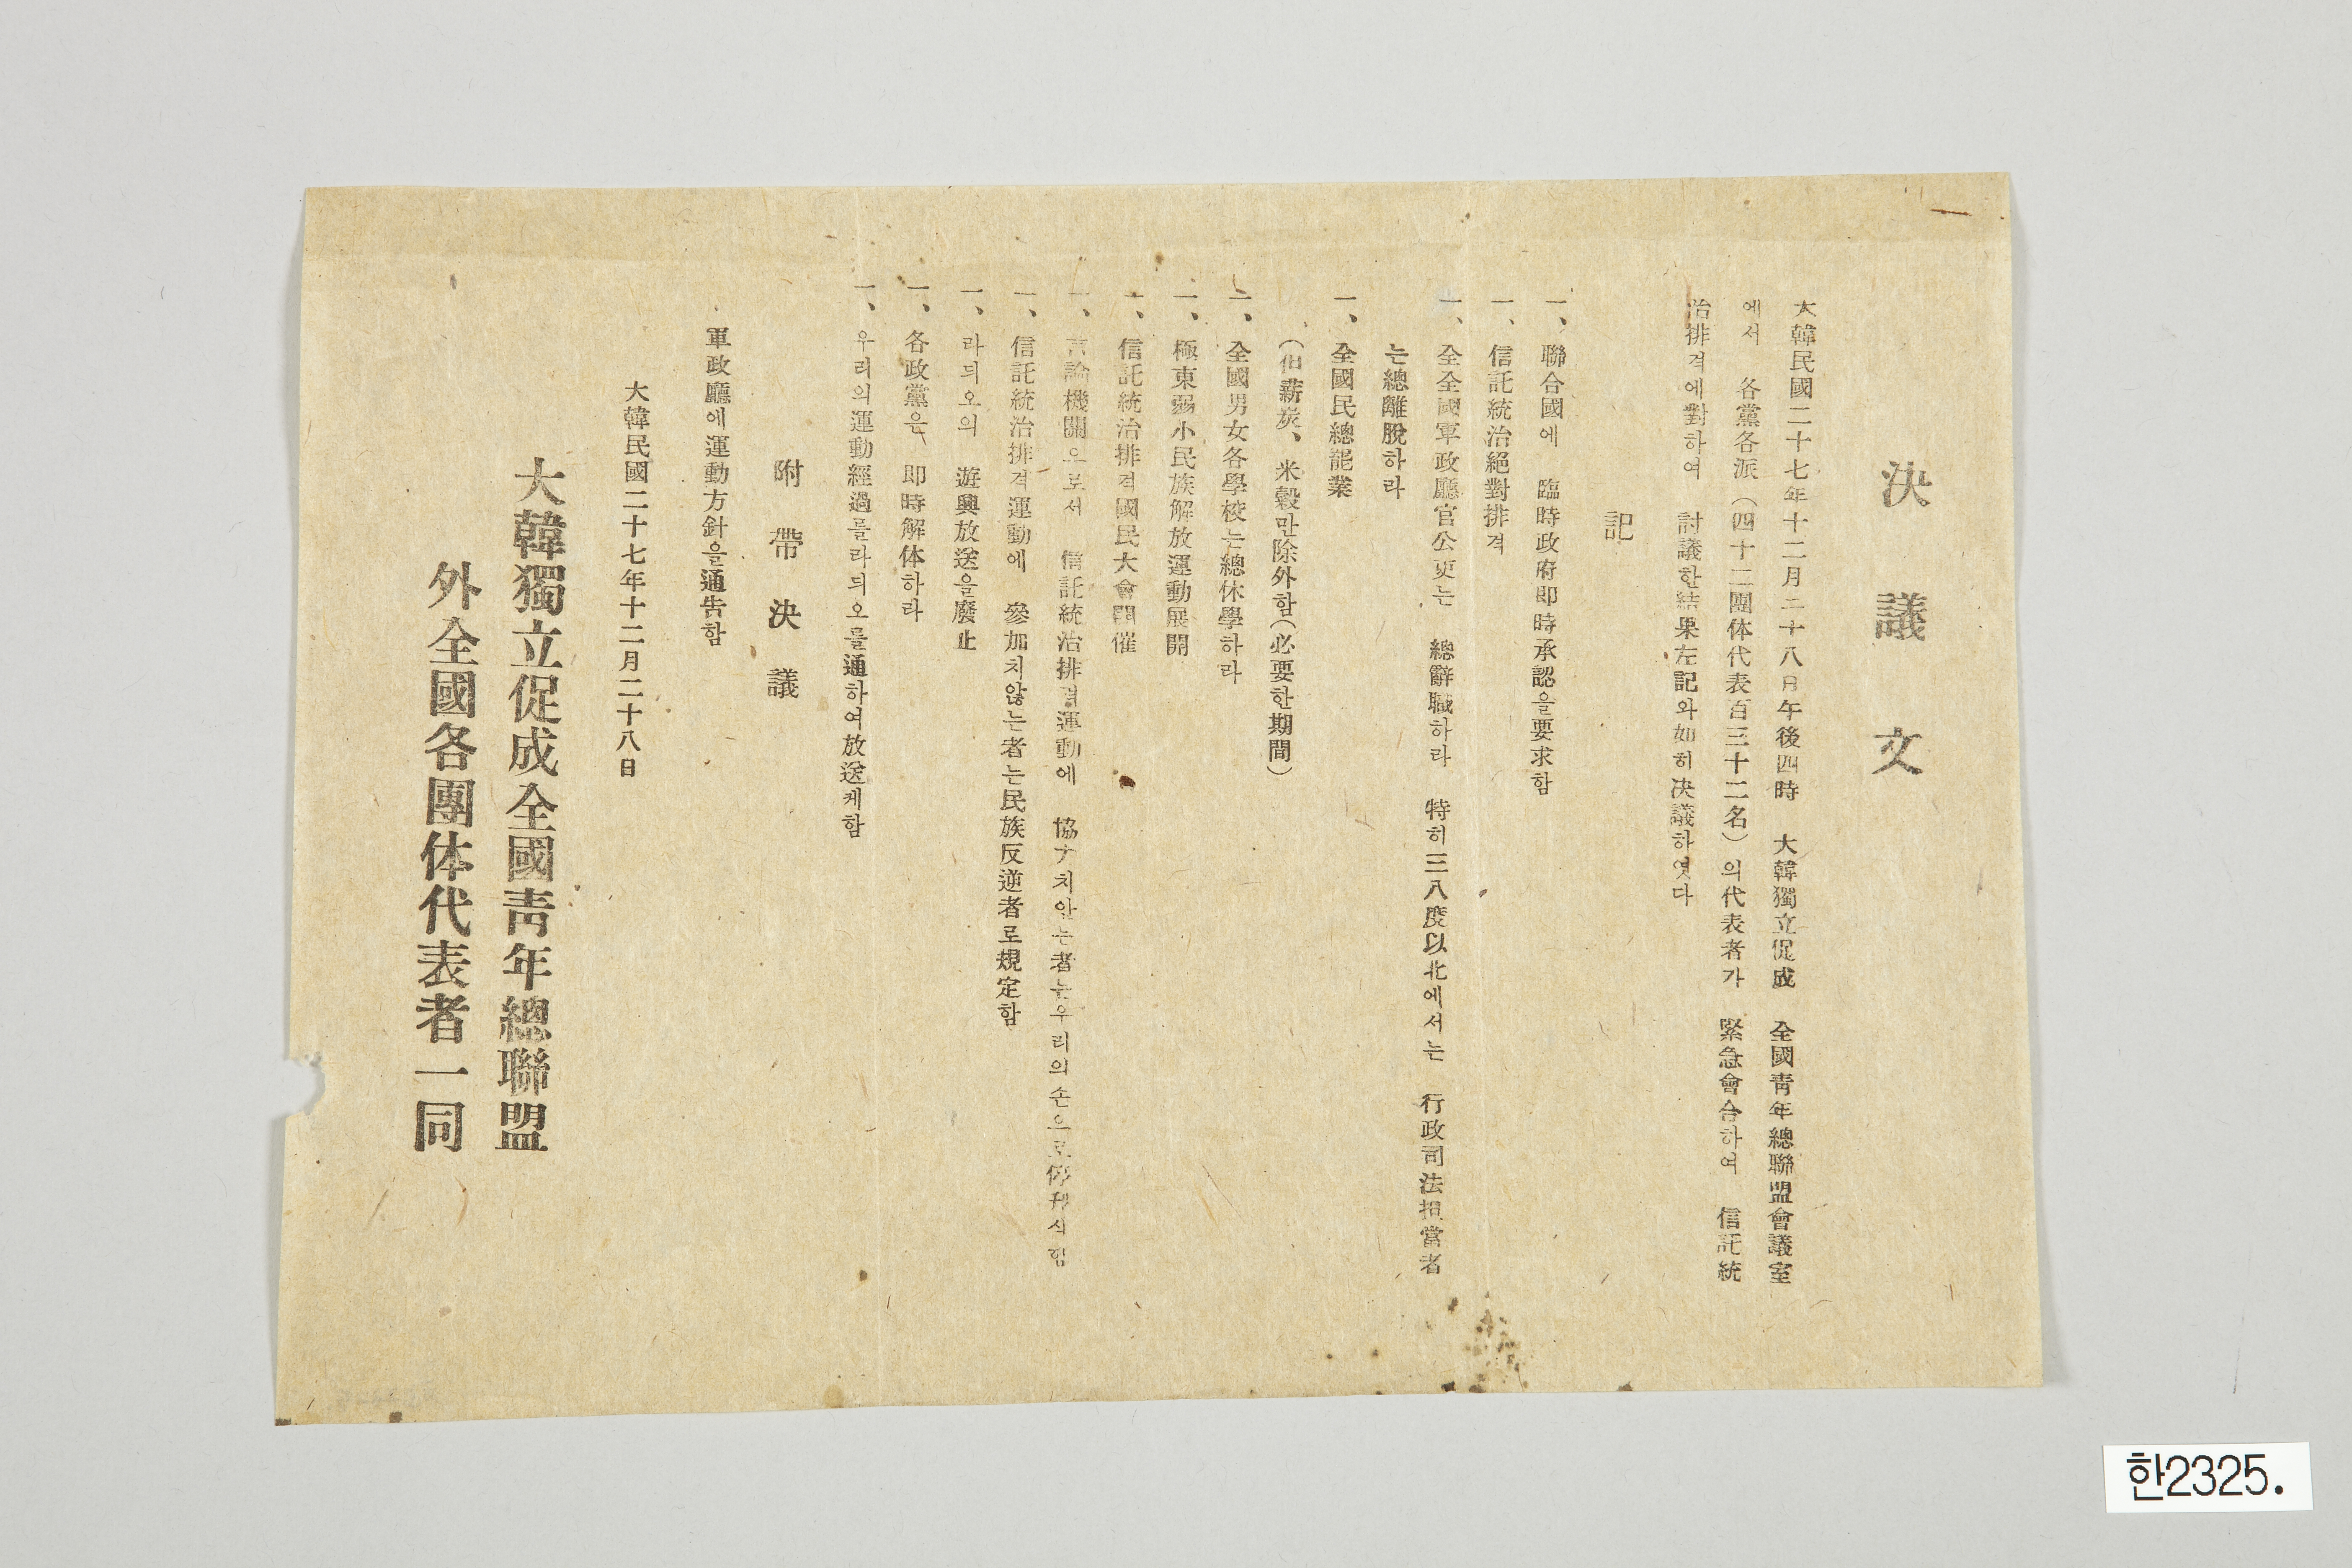 決議文
大韓民國二十七年十二月二十八日午後四時 大韓獨立促成 全國靑年總聯盟會議室
에서 各黨各派(四十二團体代表百三十二名)의代表者가 緊急會合하여 信託統
治排격에對하여 討議한結果左記와如히決議하엿다
記
一、聯合國에 臨時政府即時承認을要求함
一、信託統治絕對排격
一、全全國軍政廳官公吏는 總辭職하라 特히三八度以北에서는 行政司法担當者
는總離脫하라
一、全國民總罷業
(但薪炭、米穀만除外함(必要한期間)
一、全國男女各學校는總休學하라
一、極東弱小民族解放運動展開
一、信託統治排격國民大會開催
一、言論機關으로서 信託統治排격運動에 協力치안는者는우리의손으로停刊식힘
一、信託統治排격運動에 參加치않는者는民族反逆者로規定함
一、라듸오의 遊興放送을廢止
一、各政黨은 即時解体하라
一、우리의運動經過를라듸오를通하여放送케함
附帶決議
軍政廳에運動方針을通告함
大韓民國二十七年十二月二十八日
大韓獨立促成全國靑年總聯盟
外全國各團体代表者一同
한2325.